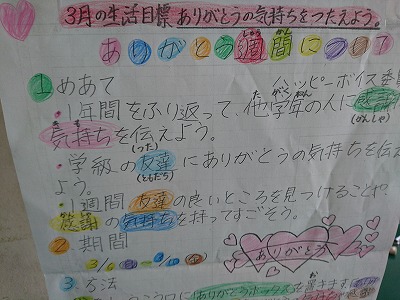 3月の生活目標 ありがとうの気持ちをつたえよう。
ありがとう週間について
しゅう かん
ハッピーボイス委
① めあて
・1年間をふり返って、他学年の人に感謝
た がくねん
(かんしゃ)
気持ちを伝えよう。
きも
(つた)
・学級の友達にありがとうの気持ちを伝
(ともだち)
よう。
・1週間友達の良いところを見つけることや、
感謝の気持ちを持ってすごそう。
② 期間
ありがとう
3. 方法
ありがとうボックス